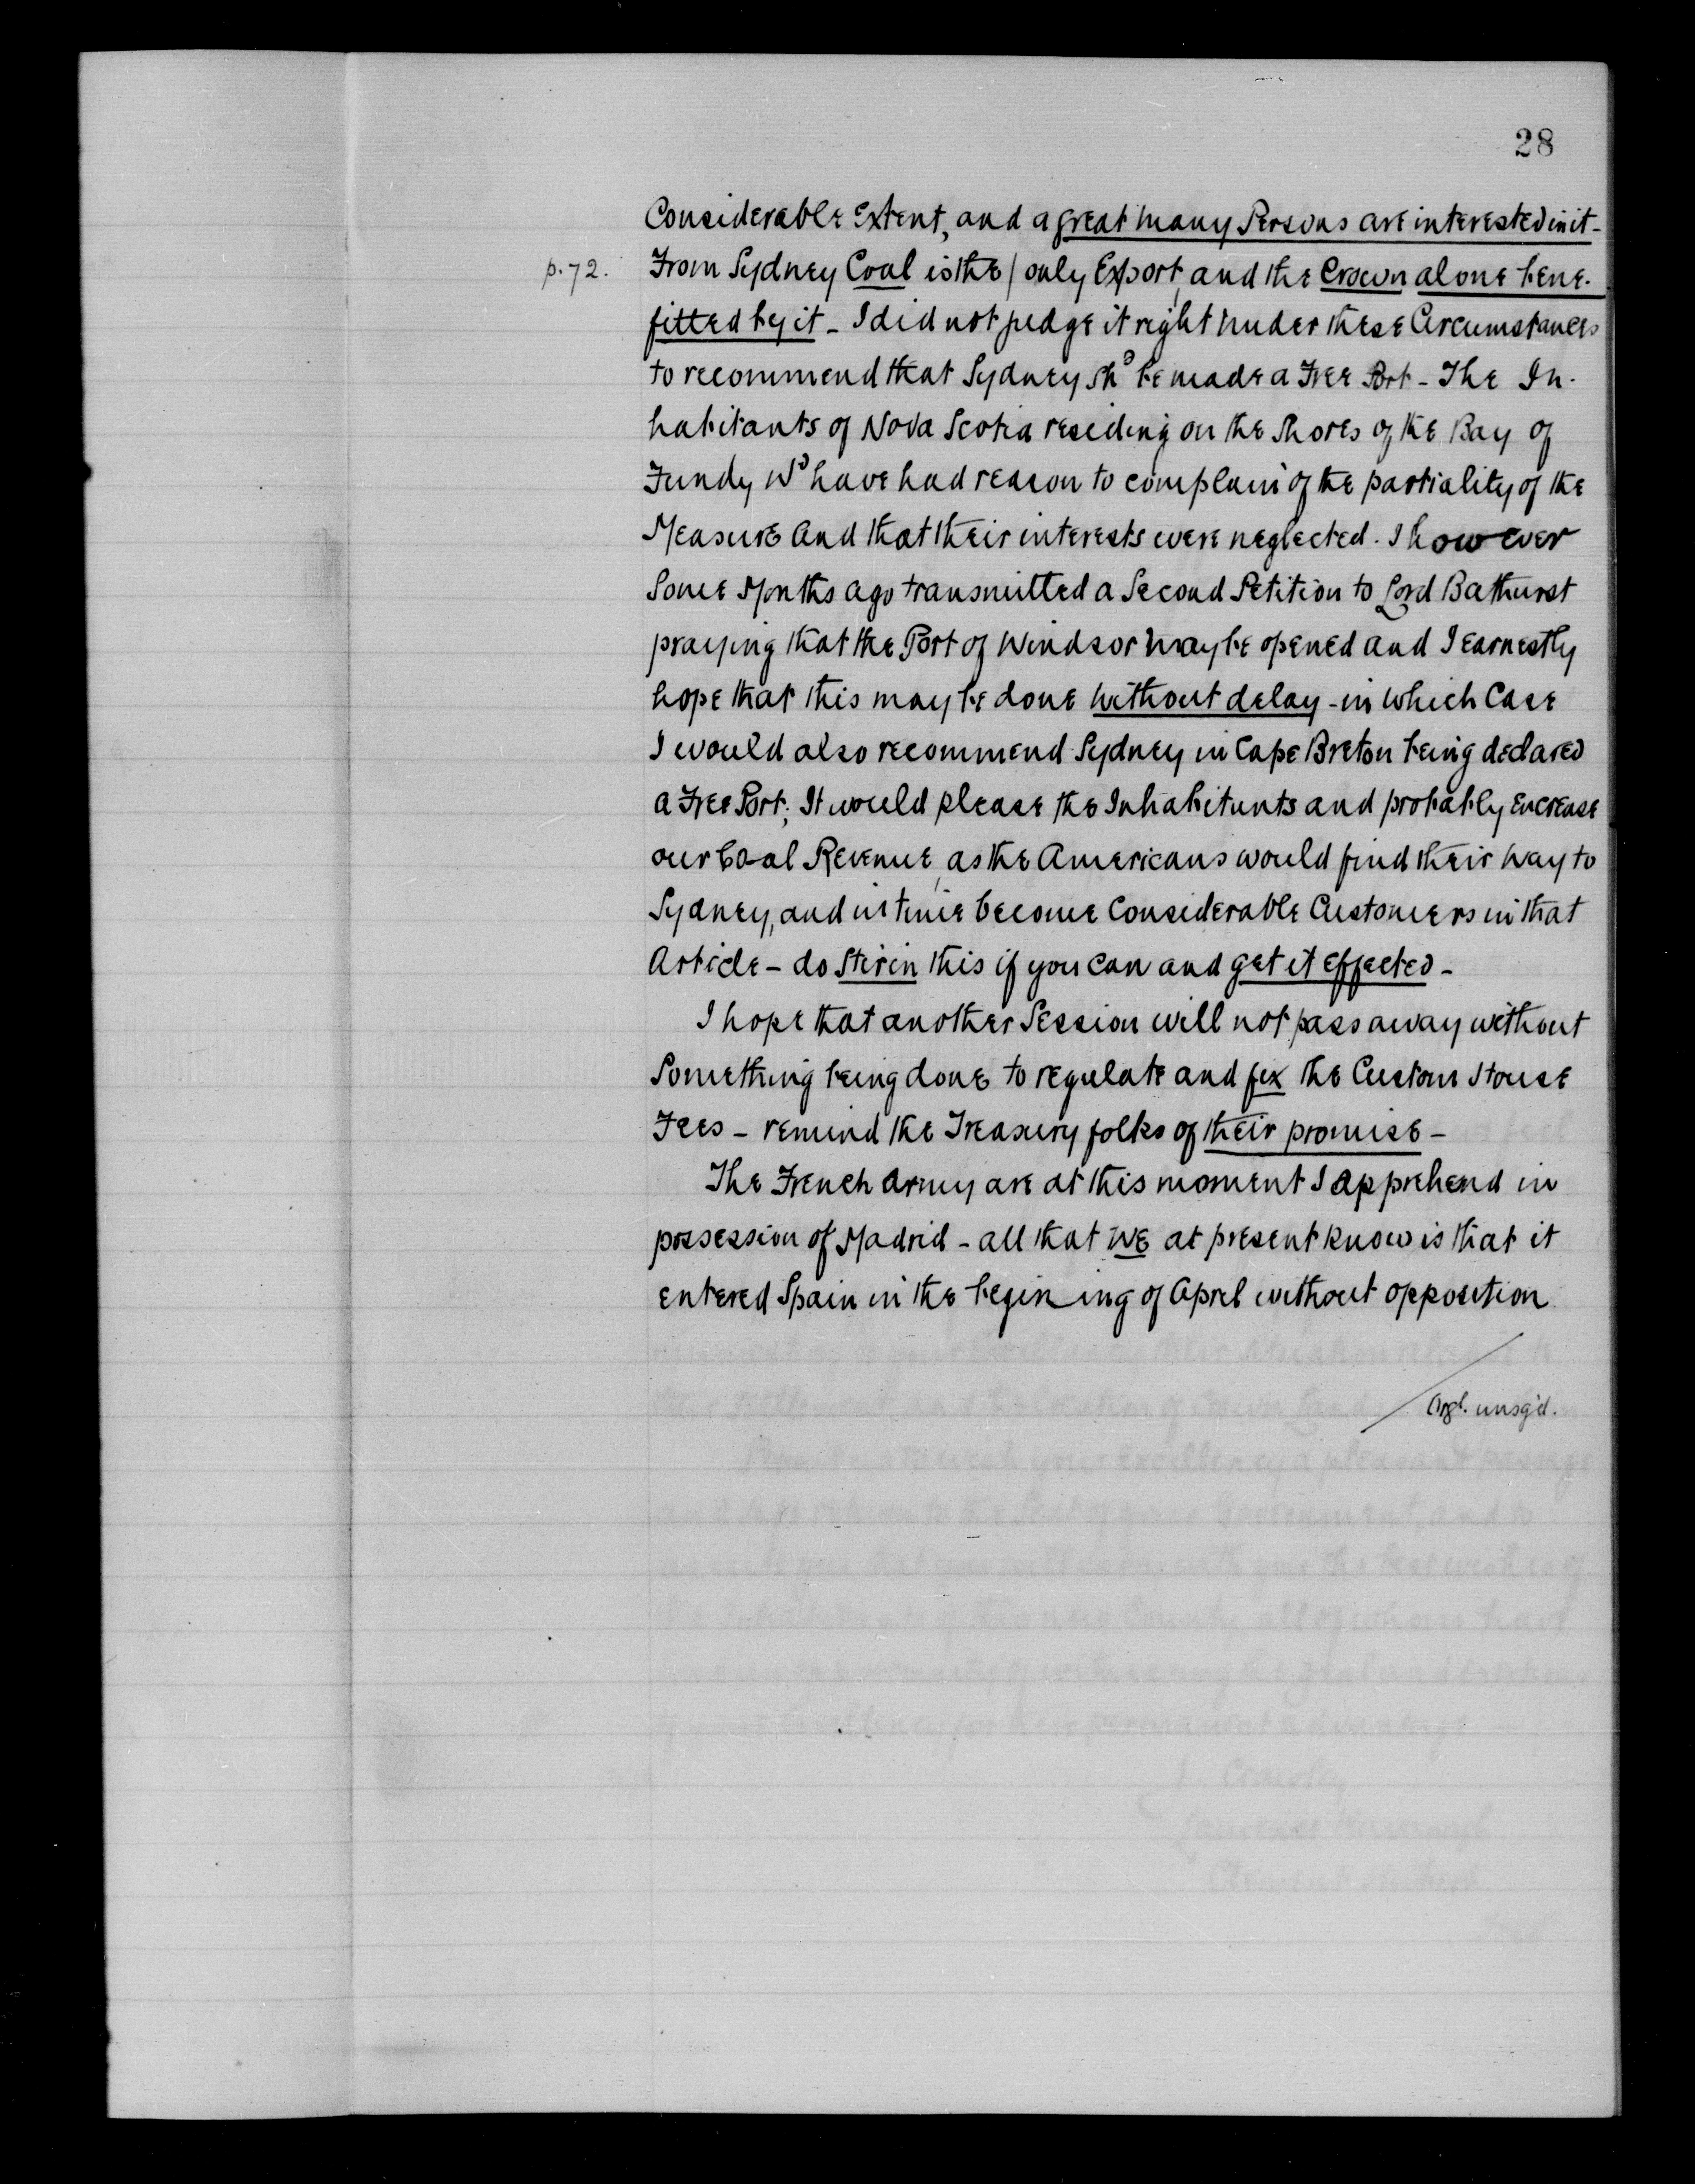 28
Considerable Extent, and a great many Persons are interested in it -
p. 72.
From Sydney Coal is the / only Export, and the Crown alone bene-
fitted by it - I did not judge it right under these Circumstances
to recommend that Sydney shd be made a Free Port - The In-
habitants of Nova Scotia residing on the Shores of the Bay of
Fundy wd have had reason to complain of the partiality of the
Measure and that their interests were neglected. I however
Some Months ago transmitted a Second Petition to Lord Bathurst
praying that the Port of Windsor may be opened and I earnestly
hope that this may be done without delay - in which Case
I would also recommend Sydney in Cape Breton being declared
a Free Port; It would please the Inhabitants and probably Encrease
our Coal Revenue, as the Americans would find their way to
Sydney, and in time become Considerable Customers in that
Article - do Stir in this if you can and get it effected -
I hope that another Session will not pass away without
Something being done to regulate and fix the Custom House
Fees - remind the Treasury folks of their promise -
The French Army are at this moment I apprehend in
possession of Madrid - all that we at present know is that it
entered Spain in the begining of April without opposition
Orgl. unsg'd.